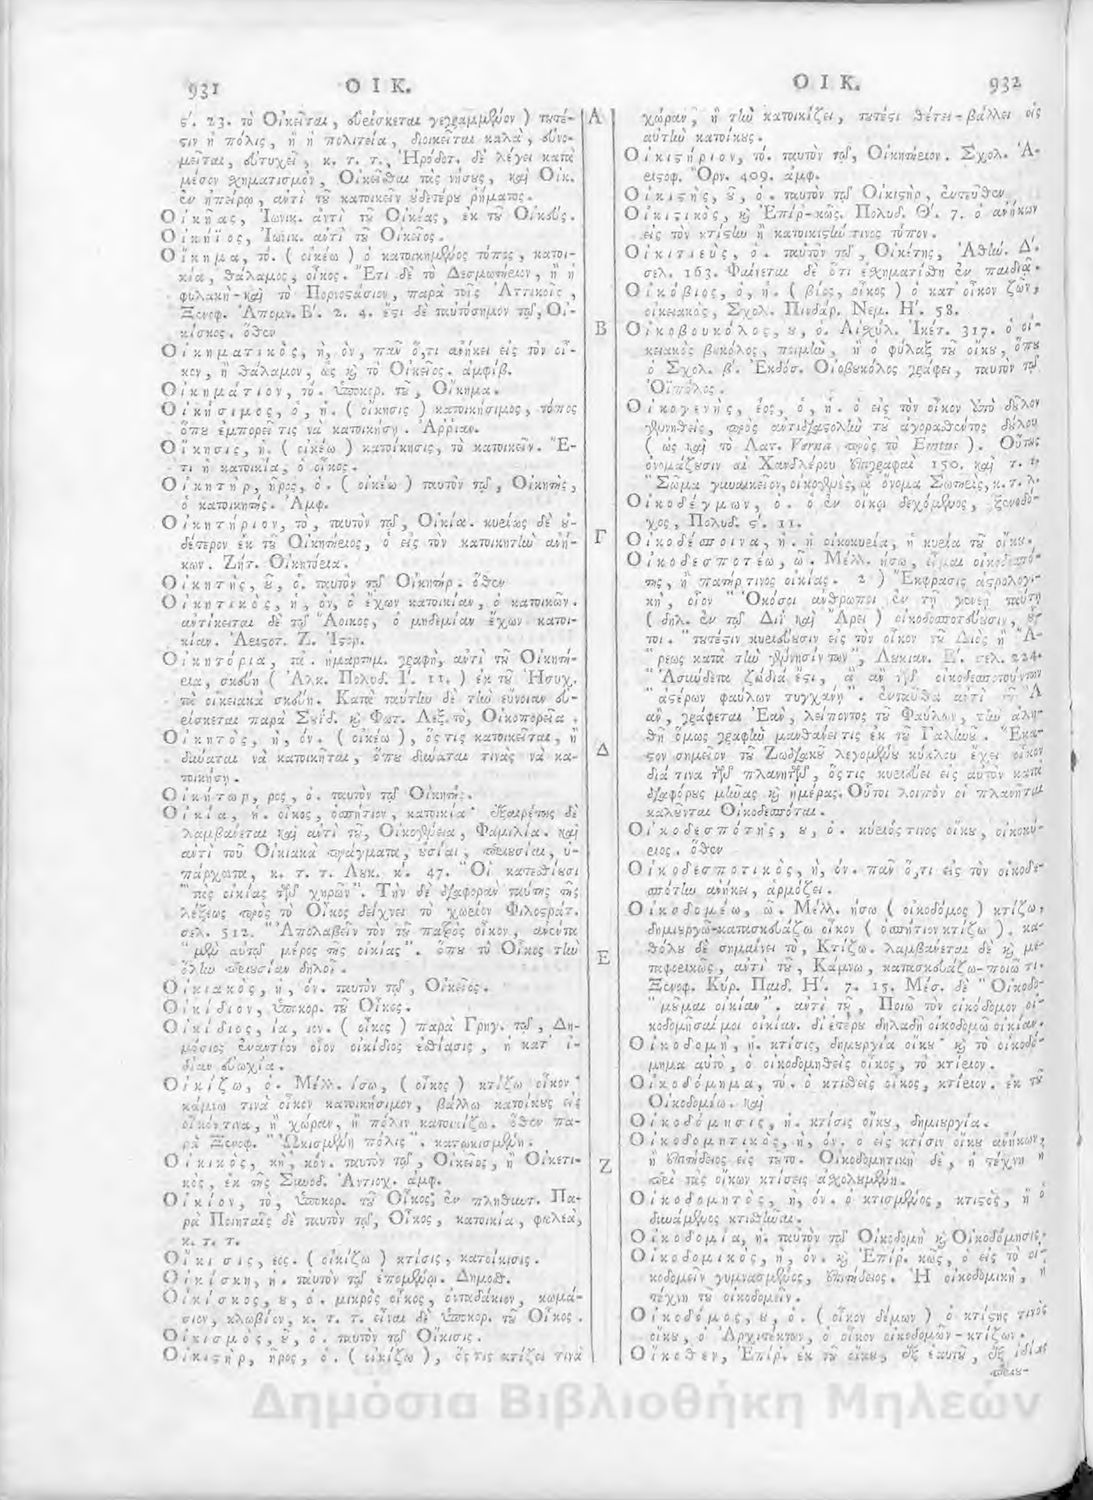 931 ΟΙΚ.
ς΄. 23. τὸ Οἰκεῖται, εὑρίσκεται γεγραμμένον) τουτέ-
στιν ἡ πόλις, ἢ ἡ πολιτεία, διοικεῖται καλὰ, εὐνο-
μεῖται, εὐτυχεῖ, κ. τ. τ., Ἡρόδοτ. δὲ λέγει κατὰ
μέσον σχηματισμὸν, Οἰκεῖσθαι τὰς νήσους, καὶ Οἰκ.
ἐν ἠπείρῳ, ἀντὶ τοῦ κατοικεῖν οὐδετέρου ῥήματος.
Οἰκῆας, Ἰωνικ. ἀντὶ τοῦ Οἰκέας, ἐκ τοῦ Οἰκεύς.
Οἰκήϊος, Ἰωνικ. ἀντὶ τοῦ Οἰκεῖος.
Οἴκημα, τό. (οἰκέω) ὁ κατοικημένος τόπος, κατοι-
κία, θάλαμος, οἶκος. Ἔτι δὲ τὸ Δεσμωτήριον, ἢ ἡ
φυλακὴ - καὶ τὸ Πορνοστάσιον, παρὰ τοῖς Ἀττικοῖς,
Ξενοφ. Ἀπομν. Β΄. 2. 4. ἔστι δὲ ταὐτόσημον τῷ, Οἰ-
κίσκος. ὅθεν
Οἰκηματικὸς, ή, όν, πᾶν ὅ,τι ἀνήκει εἰς τὸν οἶ-
κον, ἢ θάλαμον, ὡς καὶ τὸ Οἰκεῖος. ἀμφίβ.
Οἰκημάτιον, τό. ὑποκορ. τοῦ, Οἴκημα.
Οἰκήσιμος, ὁ, ἡ. (οἴκησις) κατοικήσιμος, τόπος
ὅπου ἐμπορεῖ τις νὰ κατοικήσῃ. Ἀῤῥιαν.
Οἴκησις, ἡ. (οἰκέω) κατοίκησις, τὸ κατοικεῖν. Ἔ-
τι ἡ κατοικία, ὁ οἶκος.
Οἰκητὴρ, ῆρος, ὁ. (οἰκέω) ταυτὸν τῷ, Οἰκητής,
ὁ κατοικητής. Ἀμφ.
Οἰκητήριον, τὸ, ταυτὸν τῷ, Οἰκία. κυρίως δὲ οὐ-
δέτερον ἐκ τοῦ Οἰκητήριος, ὁ εἰς τὸν κατοικητὴν ἀνή-
κων. Ζήτ. Οἰκητόρια.
Οἰκητὴς, οῦ, ὁ. ταυτὸν τῷ Οἰκητήρ. ὅθεν
Οἰκητικὸς, ή, όν, ὁ ἔχων κατοικίαν, ὁ κατοικῶν.
ἀντίκειται δὲ τῷ Ἄοικος, ὁ μηδεμίαν ἔχων κατοι-
κίαν. Ἀριστοτ. Ζ. Ἱστορ.
Οἰκητόρια, τά. ἡμαρτημ. γραφὴ, ἀντὶ τοῦ Οἰκητή-
ρια, σκεύη (Ἀλκ. Πολυδ. Ι΄. 11.) ἐκ τοῦ Ἡσυχ.
τὰ οἰκειακὰ σκεύη. Κατὰ ταύτην δὲ τὴν ἔννοιαν εὑ-
ρίσκεται παρὰ Σουΐδ. καὶ Φωτ. Λεξ. τὸ, Οἰκοπορεῖα.
Οἰκητὸς, ή, όν. (οἰκέω), ὅστις κατοικεῖται, ἢ
δύναται νὰ κατοικῆται, ὅπου δύναται τινὰς νὰ κα-
τοικήσῃ.
Οἰκήτωρ, ρος, ὁ. ταυτὸν τῷ Οἰκητής.
Οἰκία, ἡ. οἶκος, ὁσπήτιον, κατοικία· ἐξαιρέτως δὲ
λαμβάνεται καὶ ἀντὶ τοῦ, Οἰκογένεια, Φαμιλία. καὶ
ἀντὶ τοῦ Οἰκιακὰ πράγματα, οὐσίαι, περιουσίαι, ὑ-
πάρχοντα, κ. τ. τ. Λουκ. κ΄. 47. "Οἳ κατεσθίουσι
"τὰς οἰκίας τῶν χηρῶν". Τὴν δὲ διαφορὰν ταύτης τῆς
λέξεως πρὸς τὸ Οἶκος δείχνει τὸ χωρίον Φιλοστράτ.
σελ. 512. "Ἀπολαβεῖν τὸν τοῦ πατρὸς οἶκον, ἀνέντα
"μὲν αὐτῷ μέρος τῆς οἰκίας". ὅπου τὸ Οἶκος τὴν
ὅλην περιουσίαν δηλοῖ.
Οἰκιακὸς, ή, όν. ταυτὸν τῷ, Οἰκεῖος.
Οἰκίδιον, ὑποκορ. τοῦ Οἶκος.
Οἰκίδιος, ία, ιον. (οἶκος) παρὰ Γρηγ. τῷ, Δη-
μόσιος ἐναντίον οἷον οἰκίδιος ἑστίασις, ἡ κατ' ἰ-
δίαν εὐωχία.
Οἰκίζω, ὁ. Μέλλ. ίσω, (οἶκος) κτίζω οἶκον·
κάμνω τινὰ οἶκον κατοικήσιμον, βάλλω κατοίκους εἰς
οἶκόν τινα, ἢ χώραν, ἢ πόλιν κατοικίζω. ὅθεν πα-
ρὰ Ξενοφ. "Ὠκισμένη πόλις". κατῳκισμένη.
Οἰκικὸς, κὴ, κόν. ταυτὸν τῷ, Οἰκεῖος, ἢ Οἰκετι-
κὸς, ἐκ τῆς Συνοδ. Ἀντιοχ. ἀμφ.
Οἰκίον, τὸ, ὑποκορ. τοῦ Οἶκος, ἐν πληθυντ. Πα-
ρὰ Ποιηταῖς δὲ ταυτὸν τῷ, Οἶκος, κατοικία, φωλεὰ,
κ. τ. τ.
Οἴκισις, εως. (οἰκίζω) κτίσις, κατοίκισις.
Οἰκίσκη, ἡ. ταυτὸν τῷ ἑπομένῳ. Δημοσθ.
Οἰκίσκος, ου, ὁ. μικρὸς οἶκος, ὀνταδάκιον, κωμά-
σιον, κλωβίον, κ. τ. τ. εἶναι δὲ ὑποκορ. τοῦ Οἶκος.
Οἰκισμὸς, οῦ, ὁ. ταυτὸν τῷ Οἴκισις.
Οἰκιστὴρ, ῆρος, ὁ. (οἰκίζω), ὅστις κτίζει τινὰ
Α
Β
Γ
Δ
Ε
Ζ
ΟΙΚ. 932
χώραν, ἢ τὴν κατοικίζει, τουτέστι θέτει-βάλλει εἰς
αὐτὴν κατοίκους.
Οἰκιστήριον, τό. ταυτὸν τῷ, Οἰκητήριον. Σχολ. Ἀ-
ριστοφ. Ὄρν. 409. ἀμφ.
Οἰκιστὴς, οῦ, ὁ. ταυτὸν τῷ Οἰκιστὴρ, ἐντεῦθεν
Οἰκιστικὸς, καὶ Ἐπίρ-κῶς. Πολυδ. Θ΄. 7. ὁ ἀνήκων
εἰς τὸν κτίστην ἢ κατοικιστήν τινος τόπον.
Οἰκιτιεὺς, ὁ. ταυτὸν τῷ, Οἰκέτης, Ἀθήν. Δ΄.
σελ. 163. Φαίνεται δὲ ὅτι ἐσχηματίσθη ἐν παιδιᾷ.
Οἰκόβιος, ὁ, ἡ. (βίος, οἶκος) ὁ κατ' οἶκον ζῶν,
οἰκειακὸς, Σχολ. Πινδάρ. Νεμ. Η΄. 58.
Οἰκοβουκόλος, ου, ὁ. Αἰσχύλ. Ἱκέτ. 317. ὁ οἰ-
κειακὸς βουκόλος, ποιμὴν, ἢ ὁ φύλαξ τοῦ οἴκου, ὅπου
ὁ Σχολ. β΄. Ἐκδόσ. Οἰοβουκόλος γράφει, ταυτὸν τῷ
Ὀϊπόλος.
Οἰκογενὴς, έος, ὁ, ἡ. ὁ εἰς τὸν οἶκον ὑπὸ δούλου
γεννηθεὶς, πρὸς ἀντιδιαστολὴν τοῦ ἀγορασθέντος δούλου
(ὡς καὶ τὸ Λατ. Verna πρὸς τὸ Emtus). Οὕτως
ὀνομάζουσιν αἱ Χανδλέρου ἐπιγραφαὶ 150. καὶ τ. ἑ.
"Σῶμα γυναικεῖον, οἰκογενὲς, ᾧ ὄνομα Σωτηρὶς, κ. τ. λ.
Οἰκοδέγμων, ὁ. ὁ ἐν οἴκῳ δεχόμενος, ξενοδό-
χος, Πολυδ. ς΄. 11.
Οἰκοδέσποινα, ἡ. ἡ οἰκοκυρία, ἡ κυρία τοῦ οἴκου.
Οἰκοδεσποτέω, ῶ. Μέλλ. ήσω, εἶμαι οἰκοδεσπό-
της, ἢ πατήρ τινος οἰκίας. 2) Ἔκφρασις ἀστρολογι-
κὴ, οἷον "Ὁκόσοι ἄνθρωποι ἐν τῇ γενεῇ ταύτῃ
(δηλ. ἐν τῷ Διῒ καὶ Ἄρει) οἰκοδεσποτεύουσιν, οὗ-
τοι. "τουτέστιν κυριεύουσιν εἰς τὸν οἶκον τοῦ Διὸς ἢ Ἄ-
"ρεως κατὰ τὴν γέννησίν των", Λουκιαν. Ε΄. σελ. 224.
"Ἀσύνδετα ζώδιά ἐστι, ἃ ἂν τῶν οἰκοδεσποτούντων
"ἀστέρων φαύλων τυγχάνῃ". ἐνταῦθα ἀντὶ τοῦ Ἃ
ἂν, γράφεται Ἐὰν, λείποντος τοῦ Φαύλων, τὴν ἀλη-
θῆ ὅμως γραφὴν μανθάνει τις ἐκ τοῦ Γαληνοῦ. Ἕκα-
στον σημεῖον τοῦ Ζωδιακοῦ λεγομένου κύκλου ἔχει οἶκον
διά τινα τῶν πλανητῶν, ὅστις κυριεύει εἰς αὐτὸν κατὰ
διαφόρους μῆνας καὶ ἡμέρας. Οὗτοι λοιπὸν οἱ πλανῆται
καλοῦνται Οἰκοδεσπόται.
Οἰκοδεσπότης, ου, ὁ. κύριός τινος οἴκου, οἰκοκύ-
ριος. ὅθεν
Οἰκοδεσποτικὸς, ή, όν. πᾶν ὅ,τι εἰς τὸν οἰκοδε-
σπότην ἀνήκει, ἁρμόζει.
Οἰκοδομέω, ῶ. Μέλλ. ήσω (οἰκοδόμος) κτίζω,
δημιουργῶ-κατασκευάζω οἶκον (ὁσπήτιον κτίζω). κα-
θόλου δὲ σημαίνει τὸ, Κτίζω. λαμβάνεται δὲ καὶ με-
ταφορικῶς, ἀντὶ τοῦ, Κάμνω, κατασκευάζω-ποιῶ τι.
Ξενοφ. Κύρ. Παιδ. Η΄. 7. 15. Μέσ. δὲ "Οἰκοδο-
"μοῦμαι οἰκίαν". ἀντὶ τοῦ, Ποιῶ τὸν οἰκόδομον οἰ-
κοδομῆσαί μοι οἰκίαν. δι' ἑτέρου δηλαδὴ οἰκοδομῶ οἰκίαν.
Οἰκοδομὴ, ἡ. κτίσις, δημιουργία οἴκου· καὶ τὸ οἰκοδό-
μημα αὐτὸ, ὁ οἰκοδομηθεὶς οἶκος, τὸ κτίριον.
Οἰκοδόμημα, τό. ὁ κτισθεὶς οἶκος, κτίριον. ἐκ τοῦ
Οἰκοδομέω. καὶ
Οἰκοδόμησις, ἡ. κτίσις οἴκου, δημιουργία.
Οἰκοδομητικὸς, ή, όν. ὁ εἰς κτίσιν οἴκου ἀνήκων,
ἢ ἐπιτήδειος εἰς τοῦτο. Οἰκοδομητικὴ δὲ, ἡ τέχνη ἡ
περὶ τὰς οἴκων κτίσεις ἀσχολουμένη.
Οἰκοδομητὸς, ή, όν. ὁ κτισμένος, κτιστὸς, ἢ ὁ
δυνάμενος κτισθῆναι.
Οἰκοδομία, ἡ. ταυτὸν τῷ Οἰκοδομὴ καὶ Οἰκοδόμησις.
Οἰκοδομικὸς, ή, όν. καὶ Ἐπίρ. κῶς, ὁ εἰς τὸ οἰ-
κοδομεῖν γυμνασμένος, ἐπιτήδειος. Ἡ οἰκοδομικὴ, ἡ
τέχνη τοῦ οἰκοδομεῖν.
Οἰκοδόμος, ου, ὁ. (οἶκον δέμων) ὁ κτίστης τινὸς
οἴκου, ὁ Ἀρχιτέκτων, ὁ οἶκον οἰκοδομῶν-κτίζων.
Οἴκοθεν, Ἐπίρ. ἐκ τοῦ οἴκου, ἐξ ἑαυτοῦ, ἐξ ἰδίας
περιου-
Δημόσια Βιβλιοθήκη Μηλεών